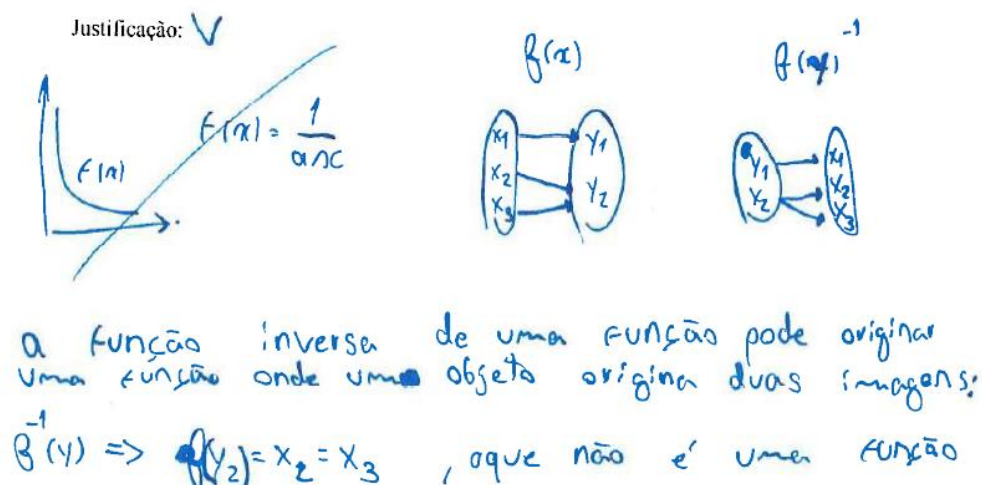 Justificação: V
f(x)
f(y)⁻¹
f(x) = 1/ax
f(x)
x1
x2
x3
y1
y2
y1
y2
x1
x2
x3
a função inversa de uma função pode originar
uma função onde um objeto origina duas imagens:
f⁻¹(y) => f(y2) = x2 = x3 , oque não é uma função